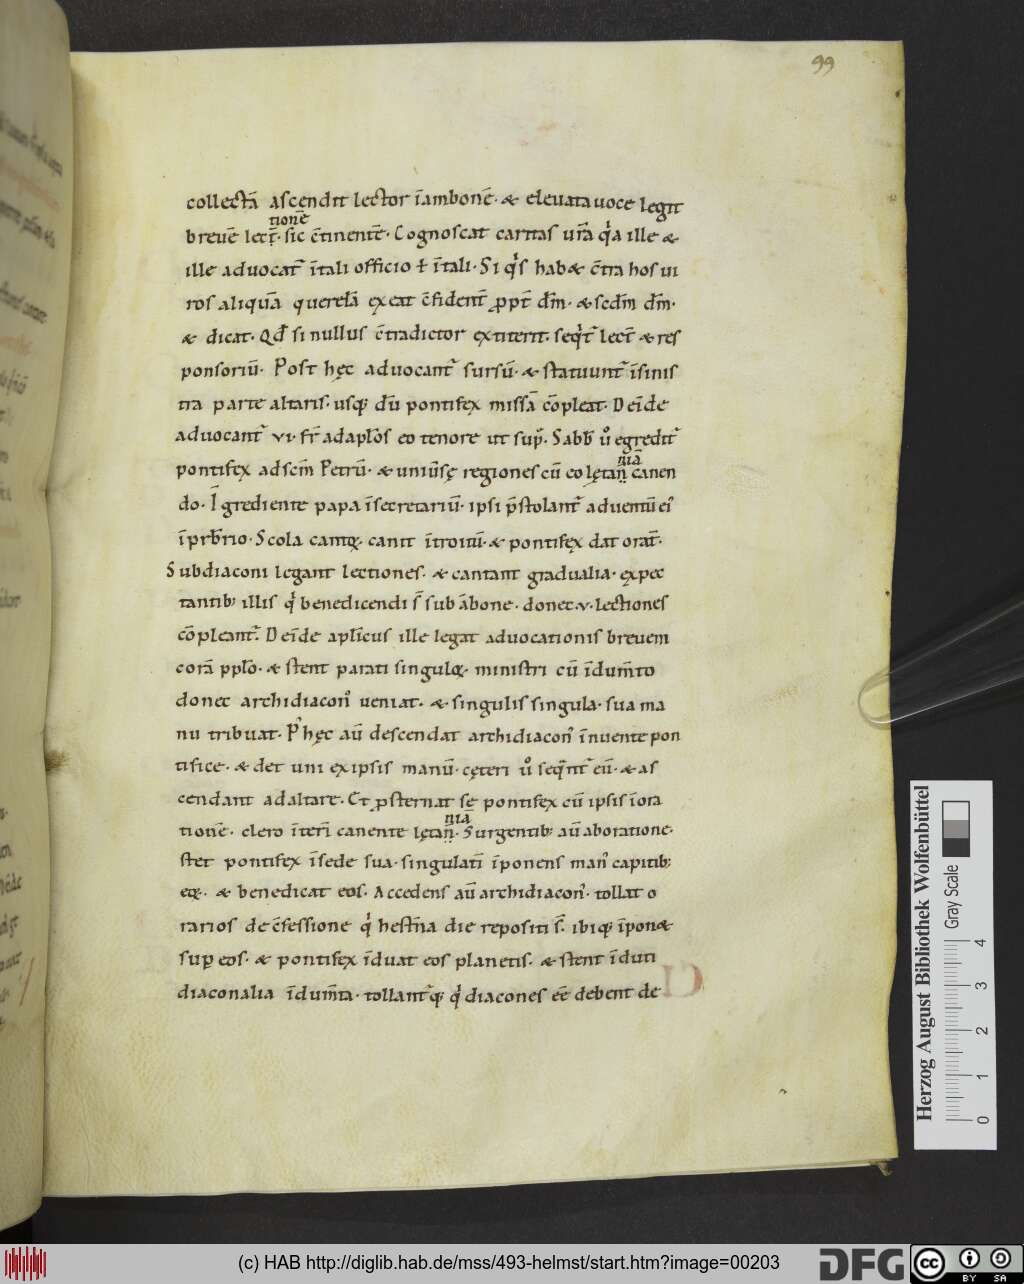 99
collectā ascendit lector īambonē· & eleuata uoce legit
tionē
breuē lect̄· sic c̄tinentē· Cognoscat caritas ur̄a qa ille &
ille aduocat̄ ītali officio ł ītali· Si qs hab& c̄tra hos ui
ros aliquā querelā exeat c̄fident̄ ꝓpt̄ dm̄· & scdm̄ dm̄·
& dicat· Qd̄ si nullus c̄tradictor extiterit· seqt̄ lect̄ & res
ponsoriū· Post hęc aduocant̄ sursū· & statuunt̄ īsinis
tra parte altaris· usq; dū pontifex missā cōpleat· Deīde
aduocant̄ vi· fr̄ adapl̄os eo tenore ut sup̄· Sabb̄ ů egredit̄
pontifex adscm̄ Petrū· & uniūsę regiones cū eo lętan̄ canen
niā
do· Īgrediente papa īsecretariū· ipsi p̄stolant̄ aduentū ei᾿
īprb̄rio· Scola cantoꝝ· canit ītroitū· & pontifex dat orat̄·
Subdiaconi legant lectiones· & cantant gradualia· expec
tantib; illis q̇ benedicendi s̄ sub ābone· donec ·v· lectiones
cōpleant̄· Deīde apl̄icus ille legat aduocationis breuem
corā ppl̄o· & stent parati singuloꝝ· ministri cū īdum̄to
donec archidiacon᾿ ueniat· & singulis singula· sua ma
nu tribuat· P᾿ hęc aū descendat archidiacon᾿ īnuente pon
tifice· & det uni ex ipsis manū· cęteri ů seqn̄t̄ eū· & as
cendant adaltare· Et ꝓsternat sē pontifex cū ipsis īora
niā
tionē· clero īterī canente lętan̄· Surgentib; aū aboratione·
stet pontifex īsede sua· singulatī īponens man᾿ capitib;
eoꝝ· & benedicat eos· Accedens aū archidiacon᾿· tollat o
rarios de c̄fessione q̇ hestn̄a die repositi s̄· ibiq; īpon&
suꝑ eos· & pontifex īduat eos planetis· & stent īduti
diaconalia īdum̄ta· tollant̄q; q̇ diacones eē debent de
Herzog August Bibliothek Wolfenbüttel
Gray Scale
0 1 2 3 4
(c) HAB http://diglib.hab.de/mss/493-helmst/start.htm?image=00203
DFG
cc BY SA